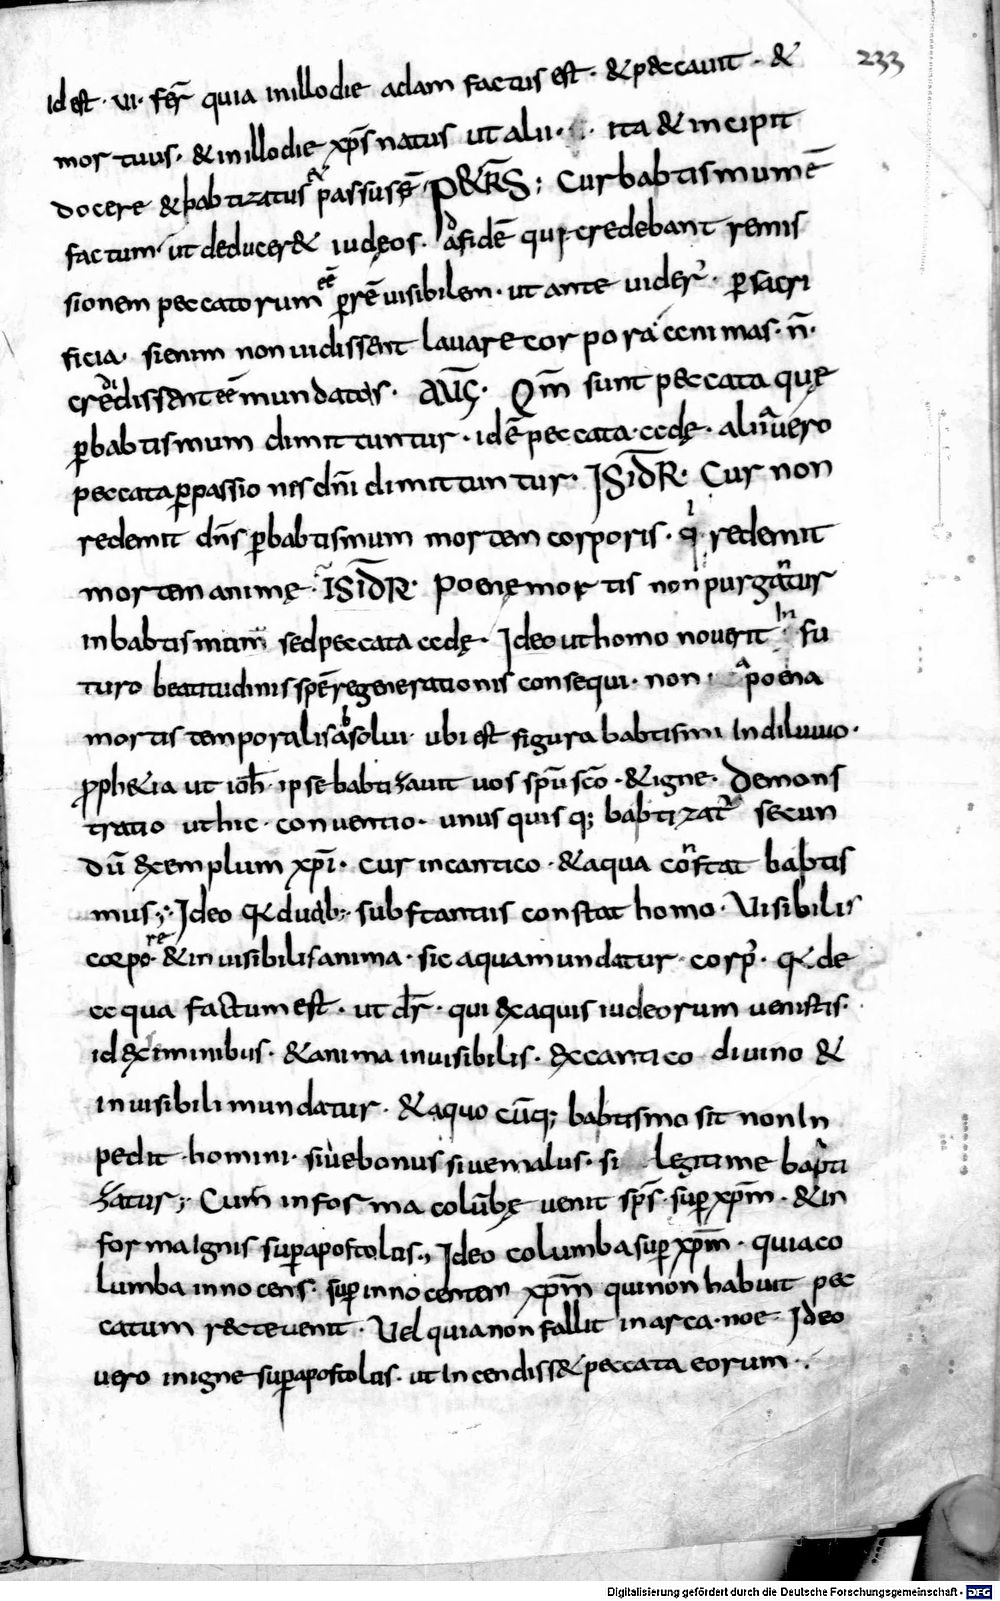 233
id est · vi · fer̄ quia inillodie adam factus est · & peccauit · &
mortuus · & inillodie xp̄s natus ut alii · ita & incipit
docere & babtizatus & passus ē · P&R̄S ; Cur babtismum ē
factum · ut deducer& iudęos · a fidē qui credebant remis
sionem peccatorum per rē uisibilem · ut ante uider · per sacri
ficia · si enim non uidissent lauare corpora ccnimas · n̄ ·
credidissent eē mundatas · AŪḠ · Qm̄ sunt peccata quę
per babtismum dimittuntur · id ē peccata ccdę · alii uero
peccata per passiones dn̄i dimittuntur · ISIDR̄ · Cur non
redemit dn̄s per babtismum mortem corporis · qi redemit
mortem animę · ISIDR̄ · Poenę mortis non purgantur
in babtismum sed peccata ccdę · Ideo ut homo nouerit In fu
turo beatitudinis spē regenerationis consequi · non poena
mortis temporalis absolui · ubi est figura babtismi In diluuio ·
Proph&ia ut ioh̄ · ipse babtizauit uos sp̄u sc̄o · & igne · Demons
tratio ut hic · conuentio · unus quis q; babtizat secun
dū exemplum xp̄i · Cur in cantico · & aqua constat babtis
mus ; Ideo quia duab; substantiis constat homo · Uisibilis
corpore · & inuisibilis anima · sic aqua mundatur corp · quia de
ccqua factum est · ut dr̄ · qui ex aquis iudeorum uenistis ·
id ex iminibus · & anima inuisibilis · ex cantico diuino &
inuisibili mundatur · & a quo cūq; babtismo sit non In
pedit homini · siue bonus siue malus · si legitime bapti
zatus ; Cum in forma columbę uenit sp̄s super xp̄m · & in
forma Ignis super apostolus ; Ideo columba super xp̄m · quia co
lumba innocens · super innocentem xp̄m qui non habuit pec
catum recte uenit · Uel quia non fallit in arca · noe · Ideo
uero in igne super apostolus · ut Incendiss& peccata eorum ·
Digitalisierung gefördert durch die Deutsche Forschungsgemeinschaft - DFG